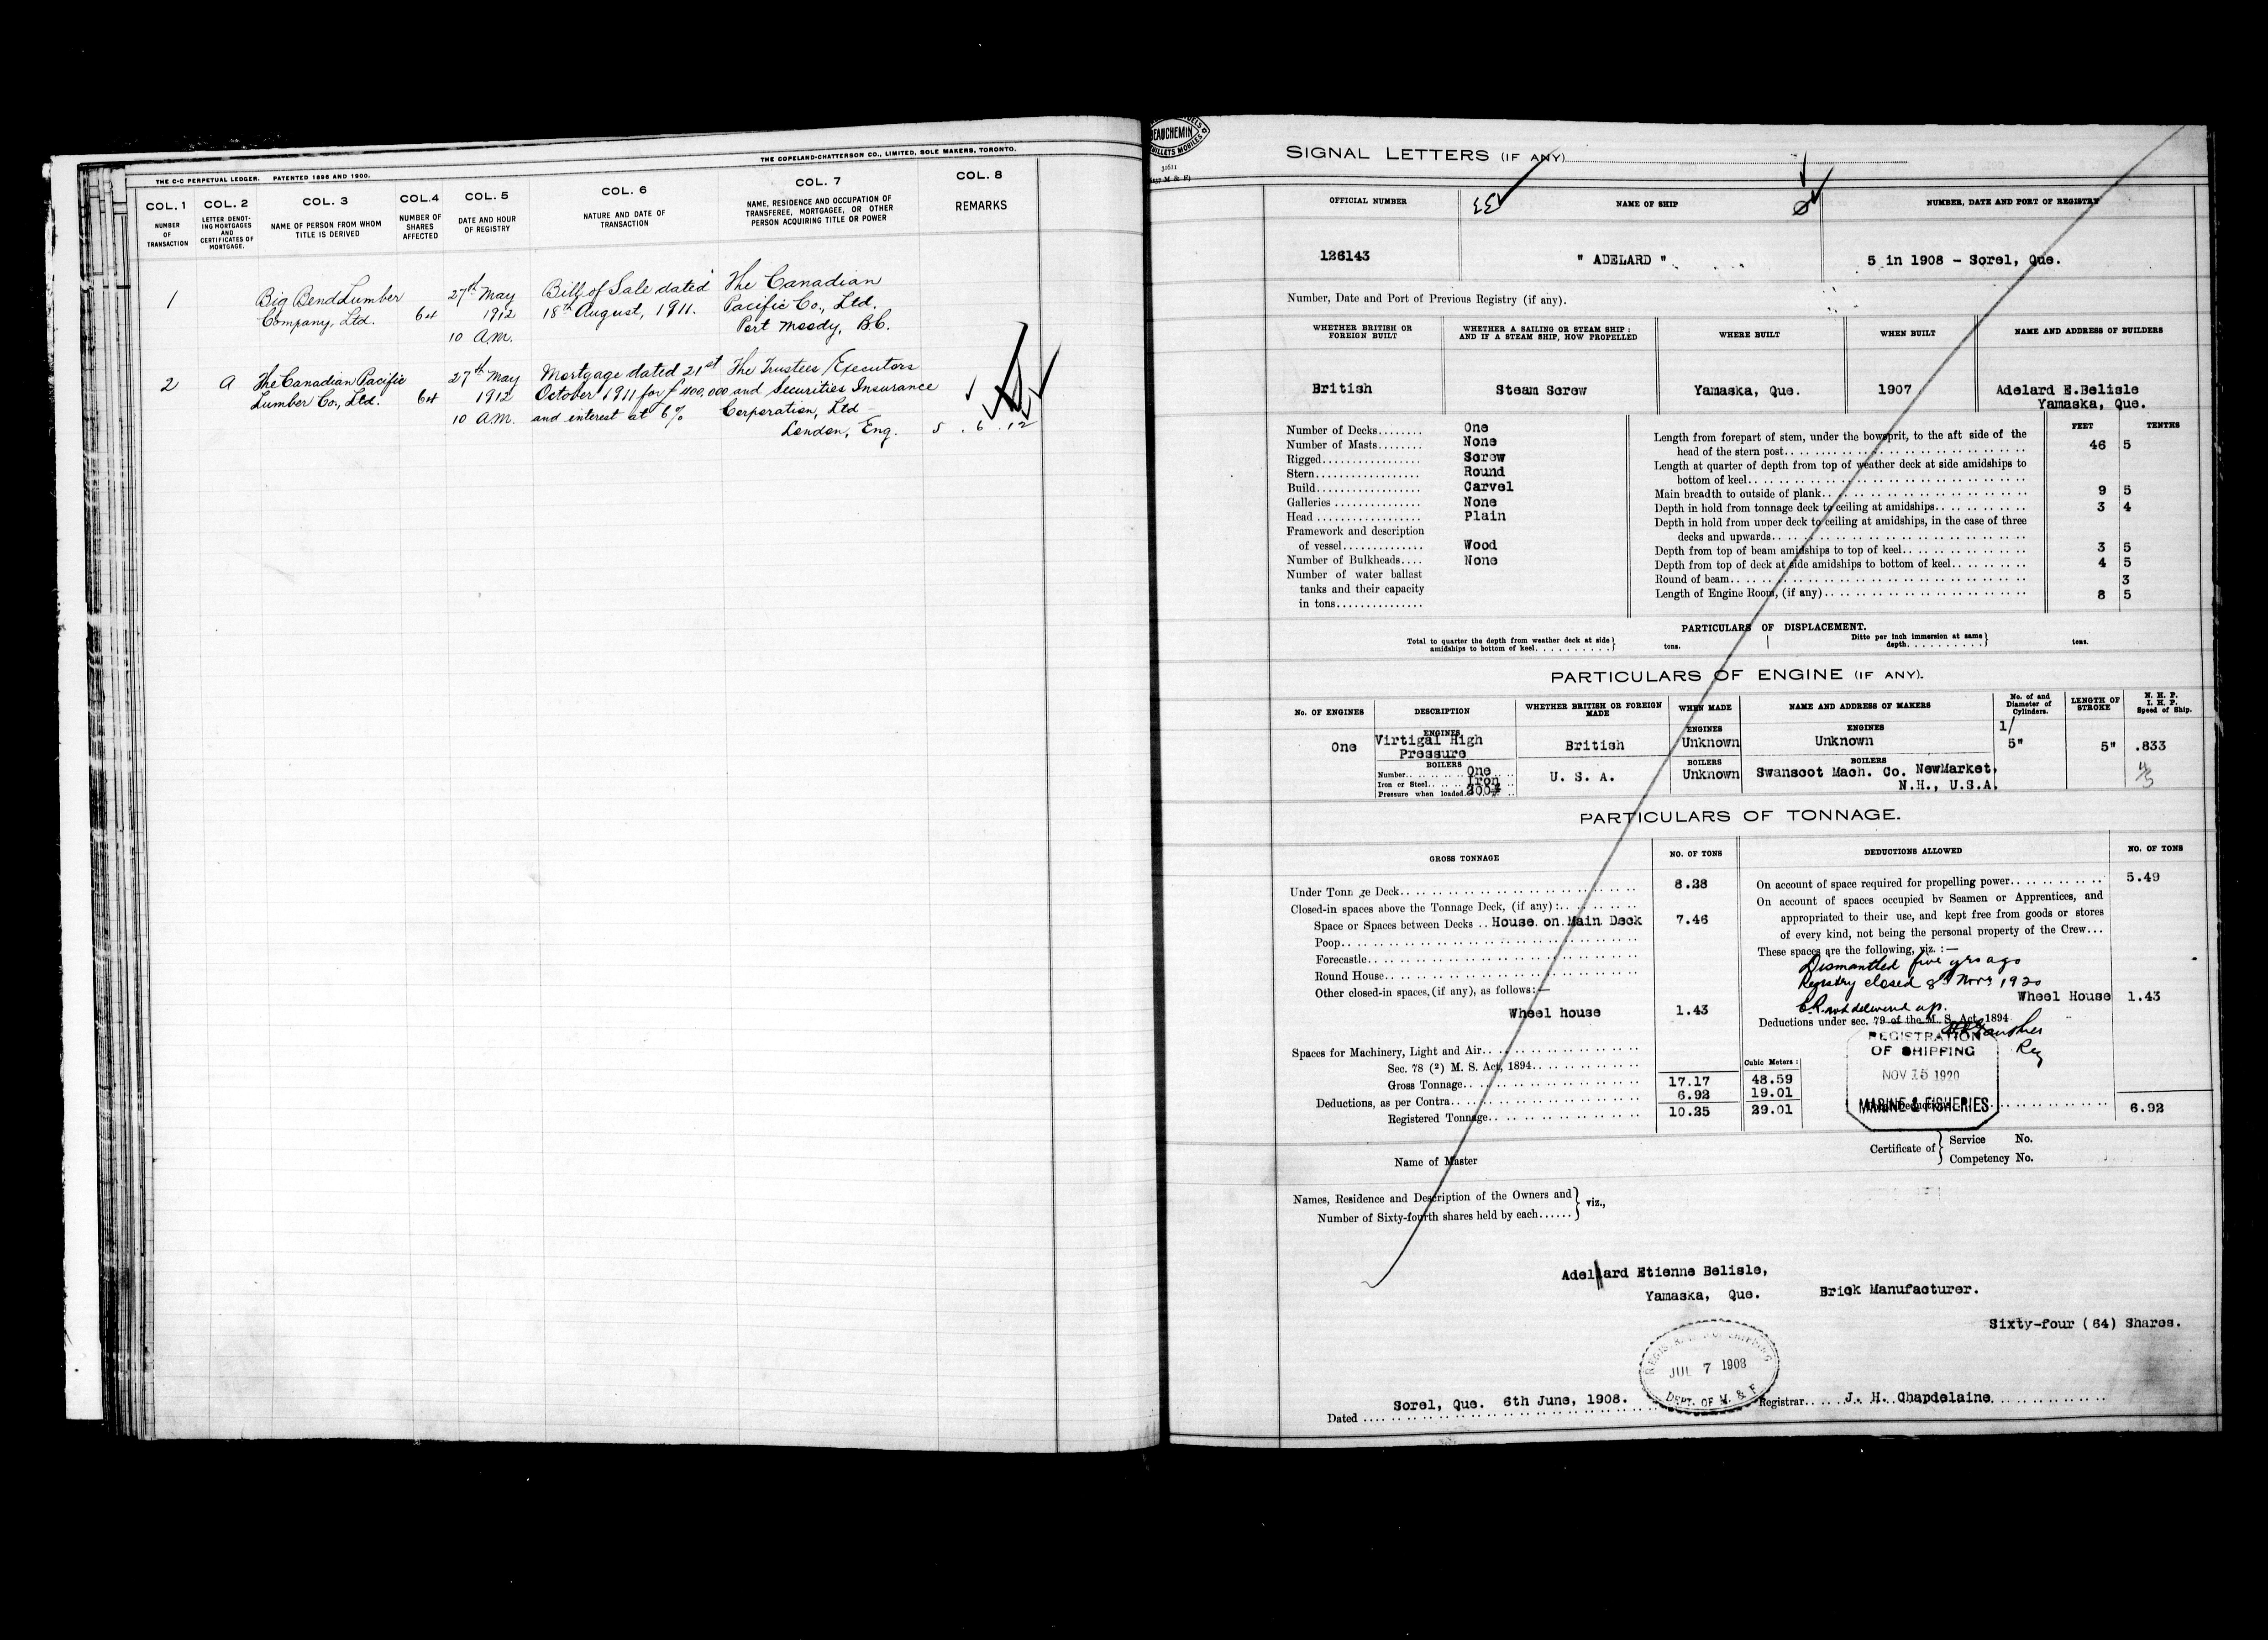 THE C-C PERPETUAL LEDGER. PATENTED 1896 AND 1900. THE COPELAND-CHATTERSON CO., LIMITED, SOLE MAKERS, TORONTO.
COL. 1 COL. 2 COL. 3 COL.4 COL. 5 COL. 6 COL. 7 COL. 8
NUMBER OF TRANSACTION
LETTER DENOTING MORTGAGES AND CERTIFICATES OF MORTGAGE.
NAME OF PERSON FROM WHOM TITLE IS DERIVED
NUMBER OF SHARES AFFECTED
DATE AND HOUR OF REGISTRY
NATURE AND DATE OF TRANSACTION
NAME, RESIDENCE AND OCCUPATION OF TRANSFEREE, MORTGAGEE, OR OTHER PERSON ACQUIRING TITLE OR POWER
REMARKS
1 Big Bend Lumber 27th May Bill of Sale dated The Canadian
Company, Ltd. 64 1912 18th August, 1911. Pacific Co., Ltd.
10 A.M. Port Moody, B.C.
2 A The Canadian Pacific 27th May Mortgage dated 21st The Trustees Executors
Lumber Co., Ltd. 64 1912 October 1911 for £400,000 and Securities Insurance
10 A.M. and interest at 6% Corporation, Ltd
London, Eng. 5 . 6 . 12
BEAUCHEMIN
FEUILLETS MOBILES
SIGNAL LETTERS (IF ANY)
OFFICIAL NUMBER 33 NAME OF SHIP NUMBER, DATE AND PORT OF REGISTRY
126143 " ADELARD " 5 in 1908 - Sorel, Que.
Number, Date and Port of Previous Registry (if any).
WHETHER BRITISH OR FOREIGN BUILT
WHETHER A SAILING OR STEAM SHIP: AND IF A STEAM SHIP, HOW PROPELLED
WHERE BUILT WHEN BUILT NAME AND ADDRESS OF BUILDERS
British Steam Screw Yamaska, Que. 1907 Adelard E.Belisle
Yamaska, Que.
FEET TENTHS
Number of Decks........ One
Number of Masts........ None
Rigged................. Screw
Stern.................. Round
Build.................. Carvel
Galleries ............... None
Head ................... Plain
Framework and description
of vessel.............. Wood
Number of Bulkheads.... None
Number of water ballast
tanks and their capacity
in tons...............
Length from forepart of stem, under the bowsprit, to the aft side of the
head of the stern post.. 46 5
Length at quarter of depth from top of weather deck at side amidships to
bottom of keel..
Main breadth to outside of plank.. 9 5
Depth in hold from tonnage deck to ceiling at amidships.. 3 4
Depth in hold from upper deck to ceiling at amidships, in the case of three
decks and upwards..
Depth from top of beam amidships to top of keel.. 3 5
Depth from top of deck at side amidships to bottom of keel.. 4 5
Round of beam.. 3
Length of Engine Room, (if any).. 8 5
PARTICULARS OF DISPLACEMENT.
Total to quarter the depth from weather deck at side} tons. Ditto per inch immersion at same} tens.
amidships to bottom of keel.......... depth..........
PARTICULARS OF ENGINE (IF ANY).
No. OF ENGINES DESCRIPTION WHETHER BRITISH OR FOREIGN MADE WHEN MADE NAME AND ADDRESS OF MAKERS No. of and Diameter of Cylinders. LENGTH OF STROKE N. H. P. I. H. P. Speed of Ship.
ENGINES ENGINES ENGINES 1/
One Virtigal High British Unknown Unknown 5" 5" .833
Pressure
BOILERS BOILERS BOILERS
Number.. One U. S. A. Unknown Swanscot Mach. Co. NewMarket,
Iron or Steel.. Iron N.H., U.S.A.
Pressure when loaded.. 200#
PARTICULARS OF TONNAGE.
GROSS TONNAGE NO. OF TONS DEDUCTIONS ALLOWED NO. OF TONS
Under Tonnage Deck.. 8.28
Closed-in spaces above the Tonnage Deck, (if any):..
Space or Spaces between Decks .. House on Main Deck 7.46
Poop..
Forecastle..
Round House..
Other closed-in spaces, (if any), as follows:—
Wheel house 1.43
Spaces for Machinery, Light and Air..
Sec. 78 (2) M. S. Act, 1894..
Cubic Meters:
Gross Tonnage.. 17.17 48.59
Deductions, as per Contra.. 6.92 19.01
Registered Tonnage.. 10.25 29.01
On account of space required for propelling power.. 5.49
On account of spaces occupied by Seamen or Apprentices, and
appropriated to their use, and kept free from goods or stores
of every kind, not being the personal property of the Crew...
These spaces are the following, viz. :—
Dismantled five yrs ago
Registry closed 8th Novr 1920
C.R. not delivered up. Wheel House 1.43
Deductions under sec. 79 of the M. S. Act, 1894
Reg
REGISTRATION
OF SHIPPING
NOV 15 1920
MARINE & FISHERIES
6.92
Name of Master Certificate of} Service No.
Competency No.
Names, Residence and Description of the Owners and} viz.,
Number of Sixty-fourth shares held by each......
Adellard Etienne Belisle,
Yamaska, Que. Brick Manufacturer.
Sixty-four (64) Shares.
REGISTRAR OF SHIPPING
JUL 7 1908
DEPT. OF M. & F.
Dated .... Sorel, Que. 6th June, 1908. Registrar.. J. H. Chapdelaine